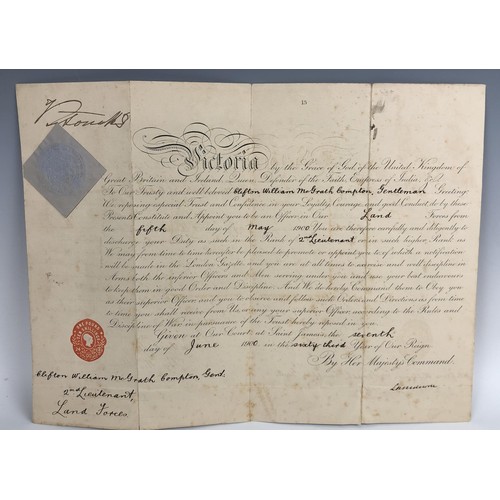 15
Victoria by the Grace of God of the United Kingdom of
Great Britain and Ireland, Queen, Defender of the Faith, Empress of India, &c.
To Our Trusty and well beloved Clifton William McGrath Compton, Gentleman Greeting
We reposing especial Trust and Confidence in your Loyalty, Courage, and good Conduct, do by these
Presents Constitute and Appoint you to be an Officer in Our Land Forces from
the fifth day of May 1900 You are therefore carefully and diligently to
discharge your Duty as such in the Rank of 2nd Lieutenant or in such higher Rank as
We may from time to time hereafter be pleased to promote or appoint you to of which a notification
will be made in the London Gazette and you are at all times to exercise and well discipline in
Arms both the inferior Officers and Men serving under you and use your best endeavours
to keep them in good Order and Discipline. And We do hereby Command them to Obey you
as their superior Officer and you to observe and follow such Orders and Directions as from time
to time you shall receive from Us, or any your superior Officer, according to the Rules and
Discipline of War, in pursuance of the Trust hereby reposed in you.
Given at Our Court at Saint James's the seventh
day of June 1900 in the sixty third Year of Our Reign
By Her Majesty's Command.
Clifton William McGrath Compton, Gent.
2nd Lieutenant,
Land Forces
Lansdowne